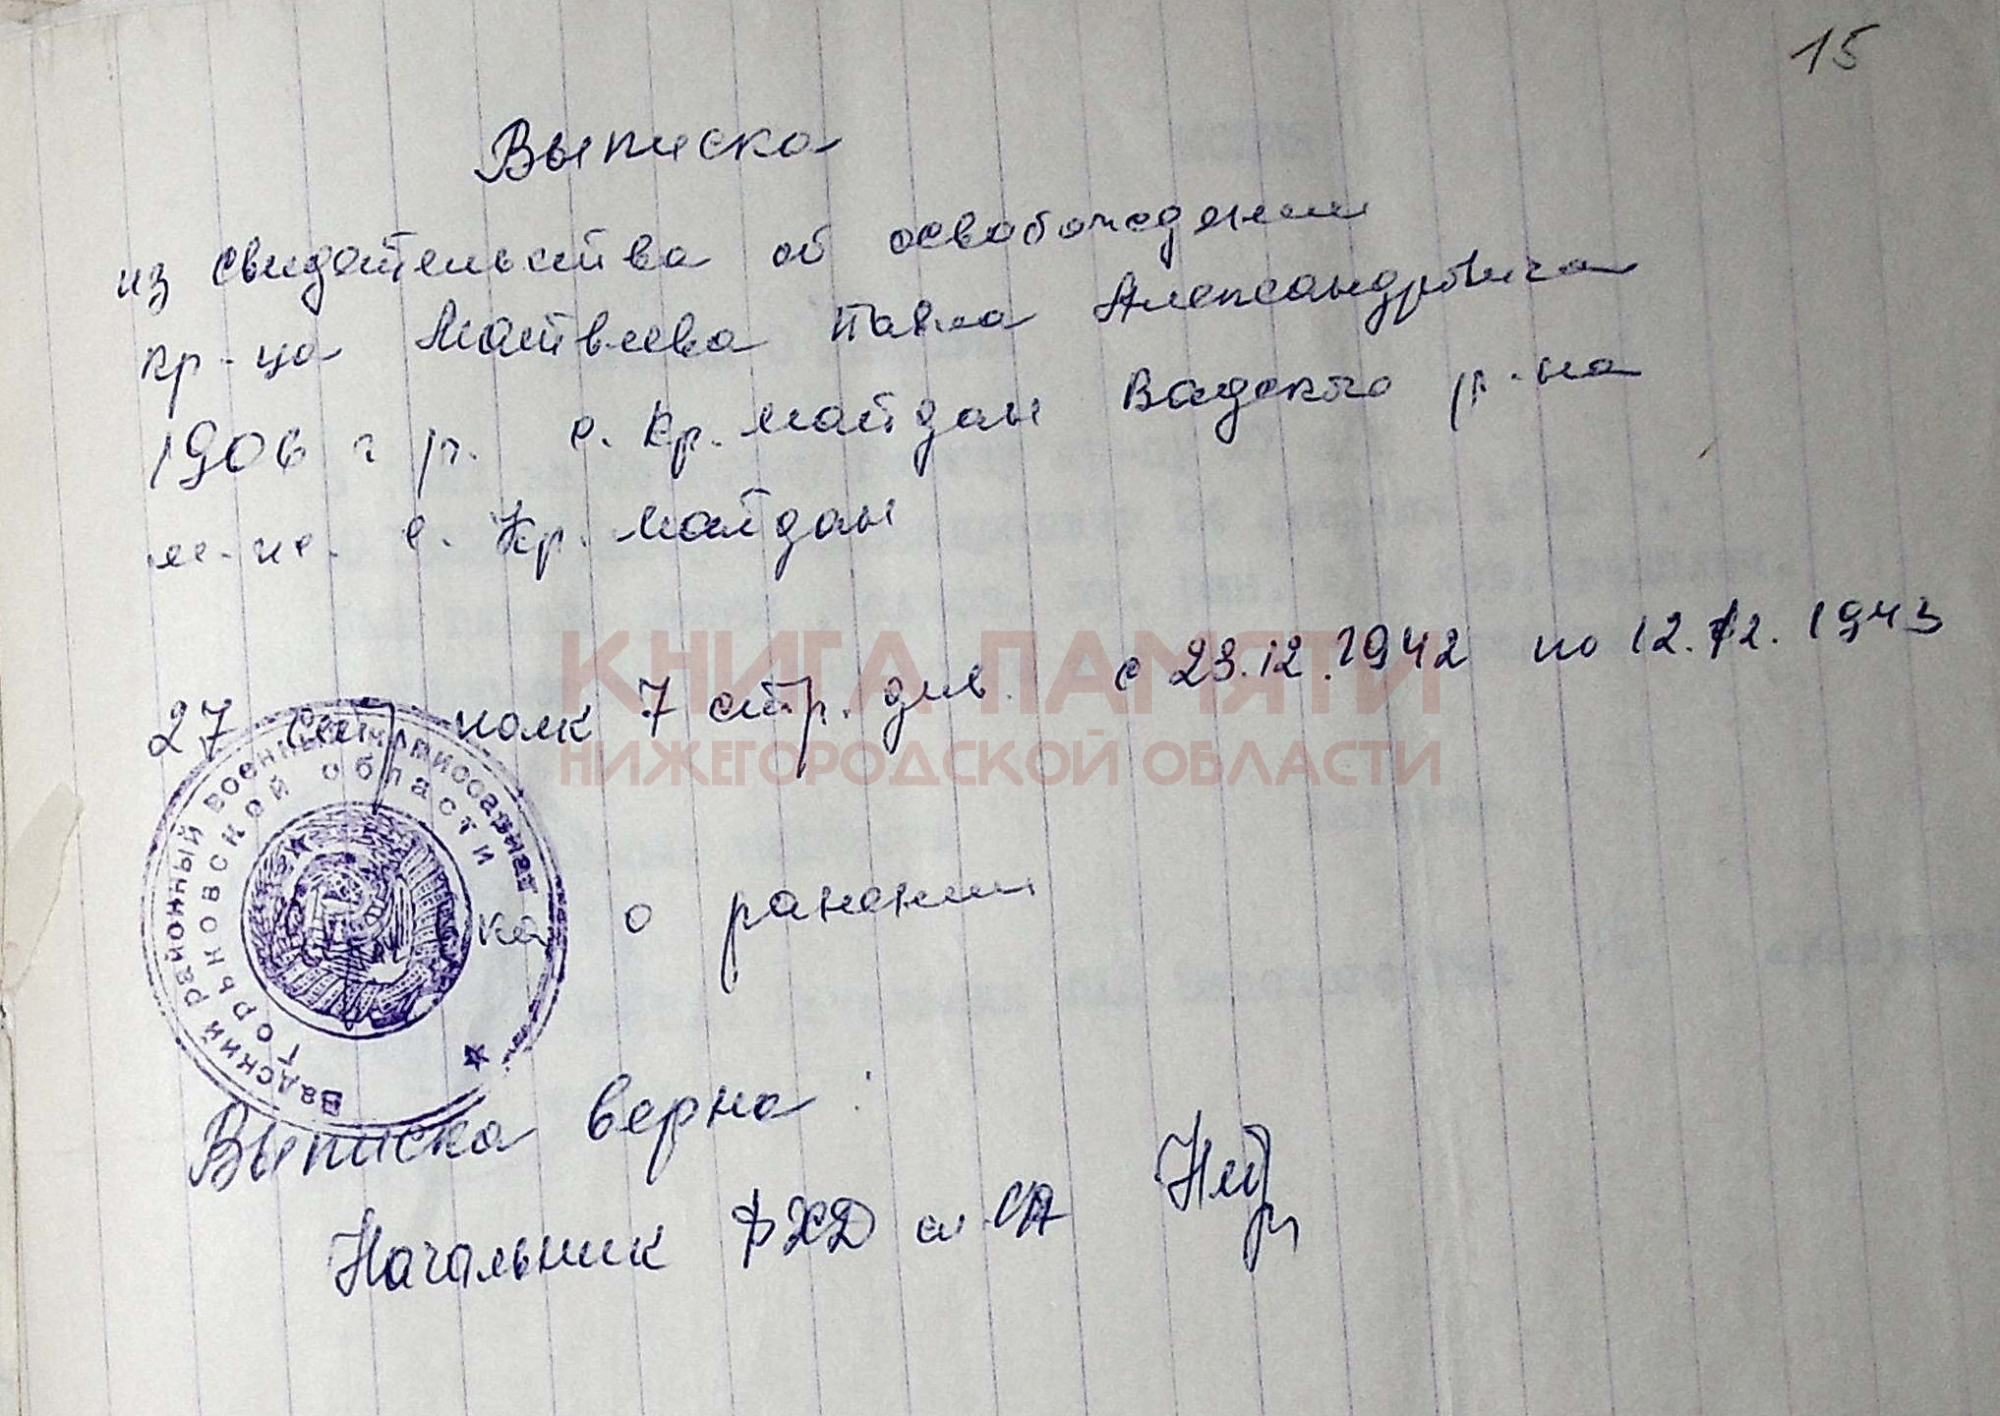 15
Выписка
из свидетельства об освобождении
кр-ца Матвеева Павла Александровича
1906 г р. с. Кр. Майдан Вадского р-на
м-че. с. Кр. Майдан
КНИГА ПАМЯТИ
НИЖЕГОРОДСКОЙ ОБЛАСТИ
27 стр полк 7 стр. див. с 23.12.1942 по 12.12.1943
Вадский районный военный комиссариат
Горьковской области
о ранении
Выписка верна:
Начальник